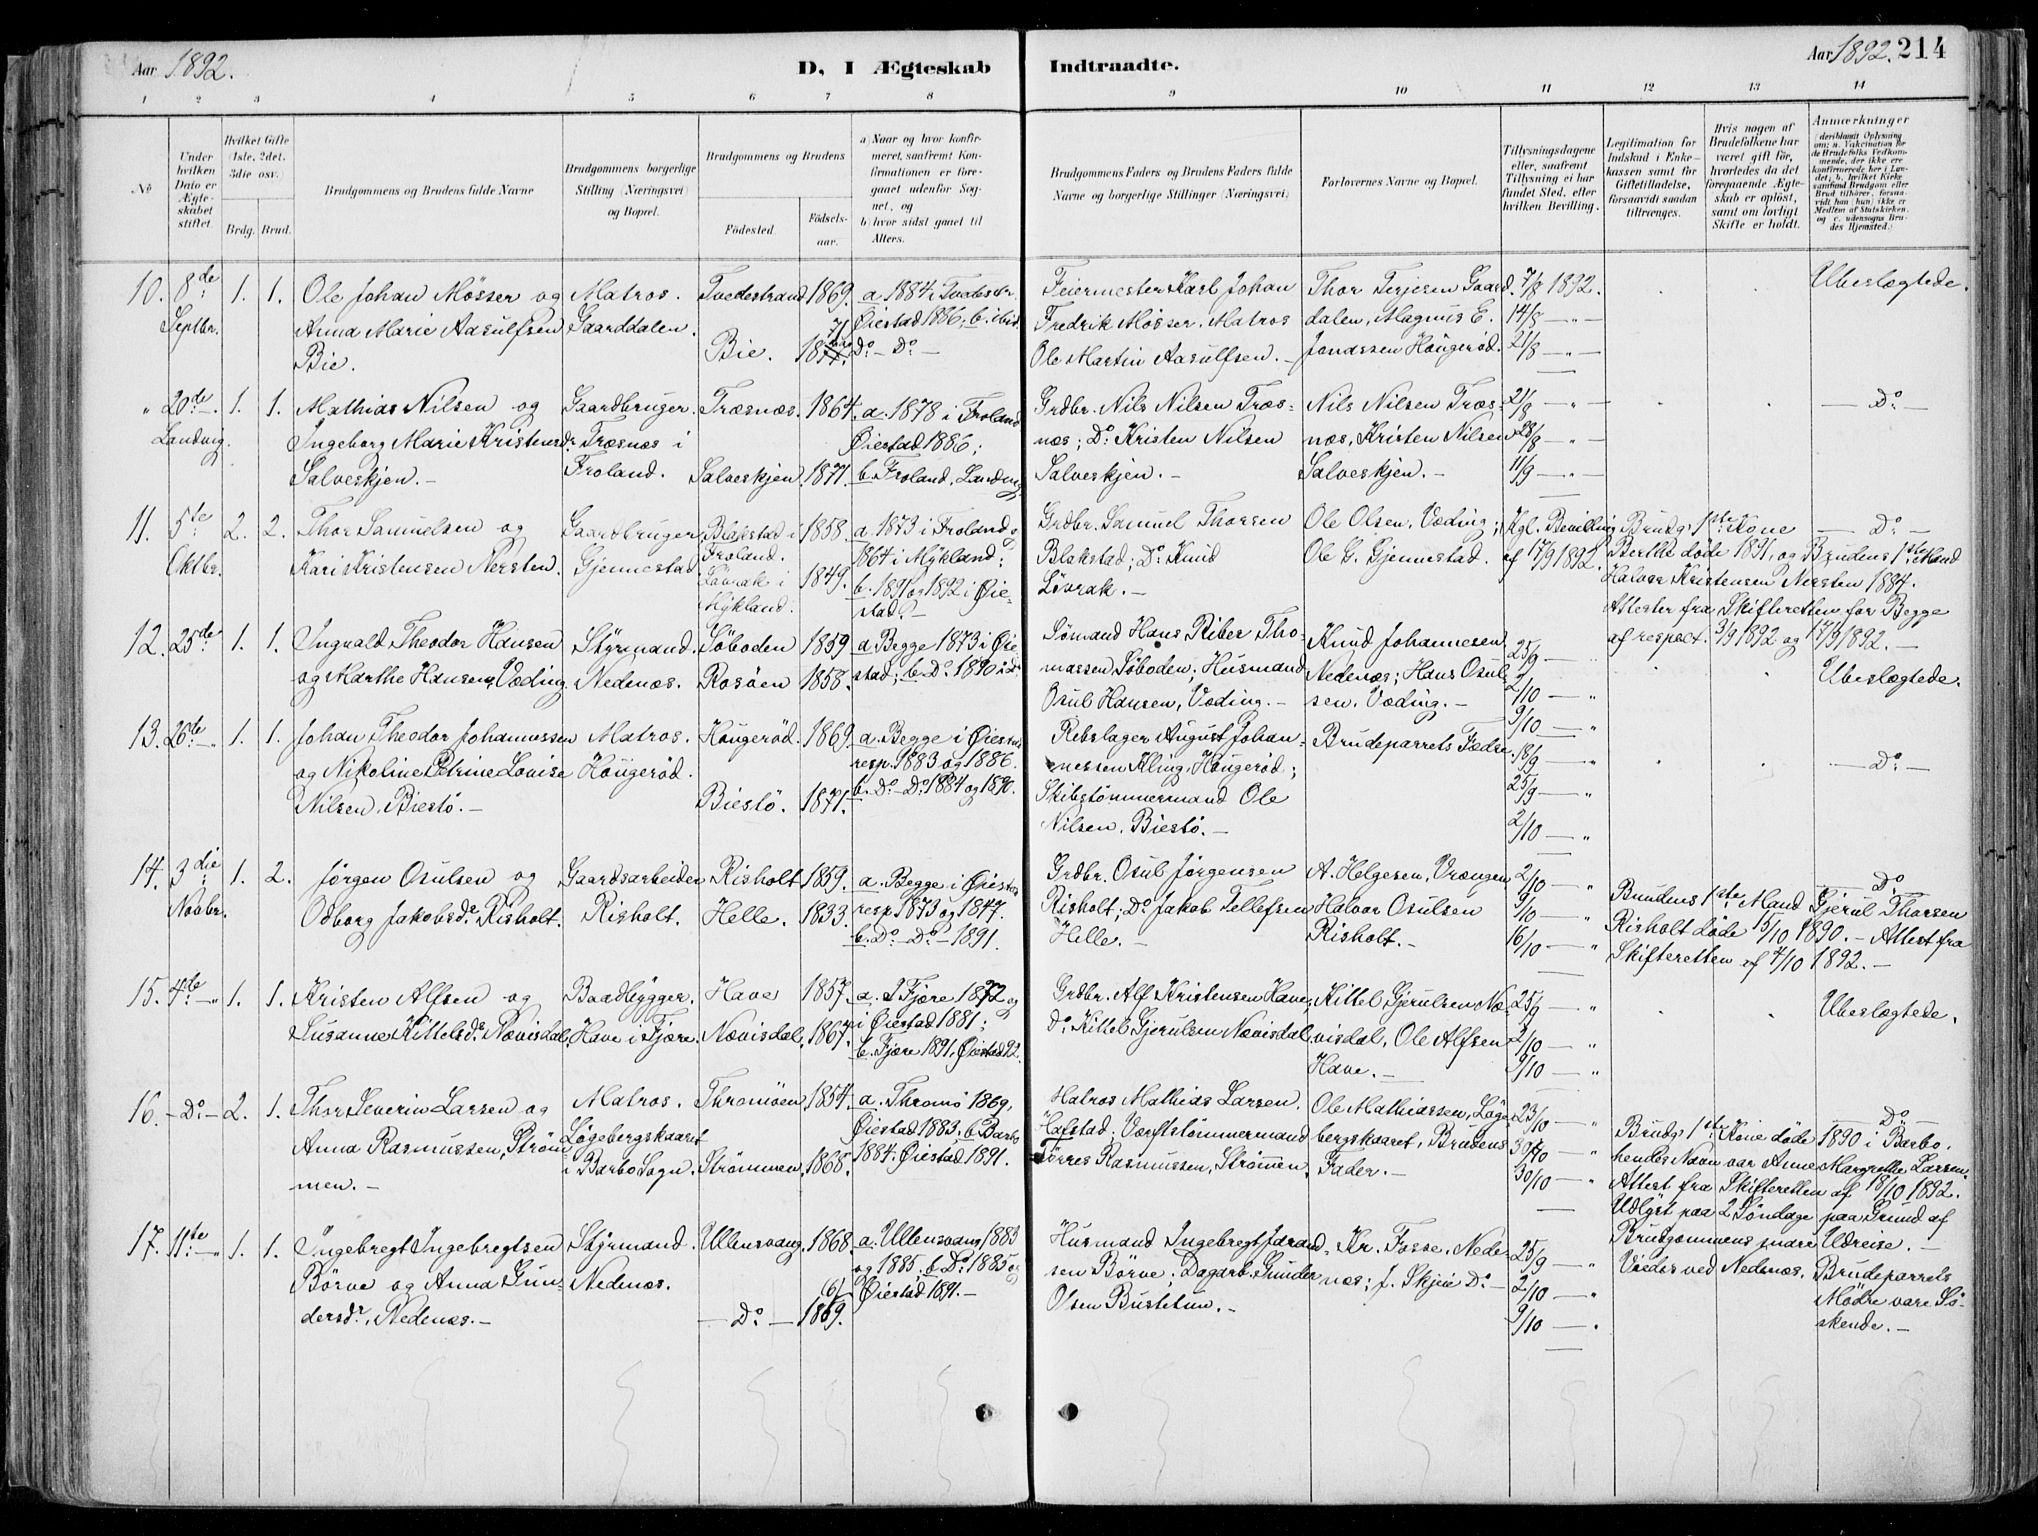 Aar 1892.
D, I Ægteskab Indtraadte.
Aar 1892. 214
1 2 3 4 5 6 7 8 9 10 11 12 13 14
No
Under hvilken Dato er Ægteskabet stiftet.
Hvilket Gifte (1ste, 2det, 3die osv.)
Brdg. Brud.
Brudgommens og Brudens fulde Navne
Brudgommens borgerlige Stilling (Næringsvei) og Bopæl.
Brudgommens og Brudens
Fødested. Fødselsaar.
a) Naar og hvor konfirmeret, saafremt Konfirmationen er foregaaet udenfor Sognet, og
b) hvor sidst gaaet til Alters.
Brudgommens Faders og Brudens Faders fulde Navne og borgerlige Stillinger (Næringsvei)
Forlovernes Navne og Bopæl.
Tillysningsdagene eller, saafremt Tillysning ei har fundet Sted, efter hvilken Bevilling.
Legitimation for Indskud i Enkekassen samt for Giftetilladelse, forsaavidt saadan tiltrænges.
Hvis nogen af Brudefolkene har været gift før, hvorledes da det foregaaende Ægteskab er opløst, samt om lovligt Skifte er holdt.
Anmærkninger
(deriblandt Oplysning om: a. Vakcination for de Brudefolks Vedkommende, der ikke ere konfirmerede her i Landet; b. hvilket Kirkesamfund Brudgom eller Brud tilhører, forsaavidt han (hun) ikke er Medlem af Statskirken, og c. udensogns Brudes Hjemsted.)
10. 8de Septbr. 1. 1.
Ole Johan Møsser og
Anna Marie Aasulfsen
Bie.
Matros.
Gaarddalen.
Tvedestrand 1869.
Bie. 1871.
a. 1884 i Tvedestr.
Øiestad 1886; b. ibid.
Do - Do -
Feiermester Karl Johan
Fredrik Møsser. Matros
Ole Martin Aasulfsen. -
Thor Terjesen Gaard
dalen, Magnus E.
Jonassen Hougerød.
7/8 1892.
14/8 - " -
21/8 - " -
Ubeslægtede.
" 20de - Landvig. 1. 1.
Mathias Nilsen og
Ingeborg Marie Kristensdr
Salveskjen. -
Gaardbruger.
Træsnæs i
Froland.
Træsnæs. 1864.
Salveskjen. 1871.
a. 1878 i Froland
Øiestad 1886;
b. Froland, Landvig.
Grdbr. Nils Nilsen Træs-
næs; Do Kristen Nilsen
Salveskjen. -
Nils Nilsen Træs-
næs, Kristen Nilsen
Salveskjen. -
21/8 - " -
28/8 - " -
11/9 - " -
- Do -
11. 5te Oktbr. 2. 2.
Thor Samuelsen og
Kari Kristensen Nersten.
Gaardbruger
Gjennestad
Blakstad i
Froland. 1858.
Løvrak i
Mykland. 1849.
a. 1873 i Froland og
1864 i Mykland;
b. 1891 og 1892 i Øie-
stad. -
Grdbr. Samuel Thorsen
Blakstad; Do Knud
Løvrak. -
Ole Olsen, Væding;
Ole G. Gjennestad.
Kgl. Bevilling
af 17/9 1892.
Brudg. 1ste Kone
Berthe døde 1891, og Brudens 1ste Mand
Halvor Kristensen Nersten 1884.
Attester fra Skifteretten for Begge
af respekt. 3/9 1892 og 17/9 1892. -
- Do -
12. 25de 1. 1.
Ingvald Theodor Hansen
og Marthe Hansen, Væding.
Styrmand.
Nedenæs.
Søboden 1859
Rosøen 1858.
a Begge 1873 i Øie-
stad; b. Do 1890 i do
Sømand Hans Riber Tho-
massen Søboden; Husmand
Osul Hansen, Væding. -
Knud Johannesen
Nedenæs; Hans Osul-
sen, Væding. -
25/9 -
2/10 - "
9/10 - "
Ubeslægtede.
13. 26de - " 1. 1.
Johan Theodor Johannessen
og Nikoline Petrine Lovise
Nilsen, Biestø. -
Matros.
Hougerød.
Hougerød. 1869
Biestø. 1871.
a. Begge i Øiestad
resp. 1883 og 1886.
b. Do - Do 1884 og 1890.
Rebslager August Johan-
nessen Kling, Hougerød;
Skibstømmermand Ole
Nilsen, Biestø. -
Brudeparrets Fædre.
18/9 - "
25/9 - "
2/10 - "
- Do -
14. 3die Novbr. 1. 2.
Jørgen Osulsen og
Odborg Jakobsdr. Risholt.
Gaardsarbeider
Risholt.
Risholt 1859.
Helle. 1833.
a. Begge i Øiestad
resp. 1873 og 1847.
b. Do - Do - 1891.
Grdbr. Osul Jørgensen
Risholt; Do Jakob Tellefsen
Helle. -
A. Helgesen, Vrængen
Halvor Osulsen
Risholt. -
2/10 - "
9/10 - "
16/10 - "
Brudens 1ste Mand Gjerul Thorsen
Risholt døde 15/10 1890. - Attest fra
Skifteretten af 4/10 1892. -
- Do
15. 4de - " 1. 1.
Kristen Alfsen og
Susanne Kittelsdr. Nævisdal.
Baadbygger.
Have i Fjære.
Have 1857.
Nævisdal. 1867.
a. I Fjære 1872 og
i Øiestad 1881;
b. Fjære 1891, Øiestad 92.
Grdbr. Alf Kristensen Have,
Do Kittel Gjerulsen Nævisdal.
Kittel Gjerulsen Næ-
visdal, Ole Alfsen
Have. -
25/9 - "
2/10 - "
9/10 - "
Ubeslægtede.
16. - Do - 2. 1.
Thor Severin Larsen og
Anna Rasmussen, Strøm-
men. -
Matros.
Løgebergskaaret
i Barbo Sogn.
Thromøen 1854.
Strømmen. 1868.
a. Thromø 1869,
Øiestad 1883; b. Barbo
1884. Øiestad 1891.
Matros Mathias Larsen,
Hafstad; Værftstømmermand
Tørres Rasmussen, Strømmen.
Ole Mathiassen, Løge-
bergskaaret, Brudens
Fader. -
23/10 - "
30/10 - "
30/10 - "
Brudg. 1ste Kone døde 1890 i Barbo.
hendes Navn var Anne Margrethe Larsen.
Attest fra Skifteretten af 18/10 1892.
Udlyst paa 2 Søndage paa Grund af
Brudgommens snare Udreise. -
Do
17. 11te - " 1. 1.
Ingebregt Ingebregtsen
Børve og Anna Gun-
dersdr., Nedenæs. -
Styrmand.
Nedenæs.
Ullensvang. 1868.
- Do - 1869.
a. Ullensvang 1883
og 1885. b. Do 1885 og
Øiestad 1891. -
Husmand Ingebregt Jorand-
sen Børve; Dagarb. Gunder
Olsen Bustetun. -
Kr. Fosse, Nede-
næs; f. Skjeie Do -
25/9 - "
2/10 - "
9/10 - "
Viedes ved Nedenæs.
Brudeparrets
Mødre vare Sø-
skende. -